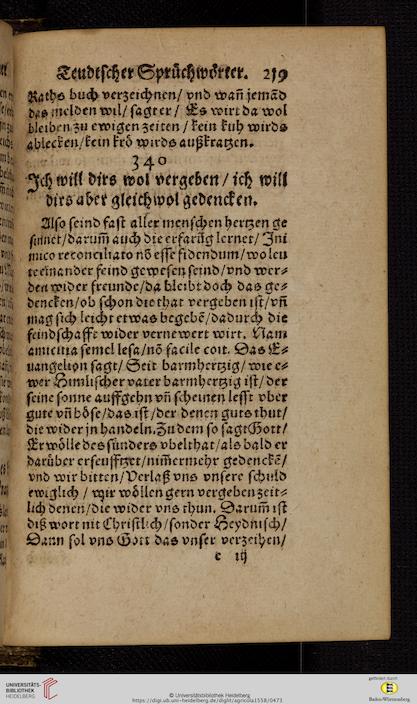 Teudtscher Sprüchwörter. 219
Raths buch verzeichnen/ vnd wañ jemãd
das melden wil/ sagt er / Es wirt da wol
bleiben zu ewigen zeiten / kein kuh wirds
ablecken/kein krö wirds außkratzen.
340
Jch will dirs wol vergeben / ich will
dirs aber gleichwol gedencken.
Also seind fast aller menschen hertzen ge
sinnet/darum̃ auch die erfarũg lernet/ Jni
mico reconciliato nõ esse fidendum/wo leu
te einander feind gewesen seind/vnd wer-
den wider freunde/da bleibt doch das ge-
dencken/ob schon die that vergeben ist/vñ
mag sich leicht etwas begebẽ/dadurch die
feindschafft wider vernewert wirt. Nam
amicitia semel lesa/nõ facile coit. Das E-
uangelion sagt/ Seit barmhertzig/ wie e-
wer Himlischer vater barmhertzig ist/der
seine sonne auffgehn vñ scheinen lesst vber
gute vñ böse/das ist/der denen guts thut/
die wider jn handeln. Zu dem so sagt Gott/
Er wölle des sünders vbelthat/als bald er
darüber erseufftzet/nim̃ermehr gedenckẽ/
vnd wir bitten/Verlaß vns vnsere schuld
ewiglich / wir wöllen gern vergeben zeit-
lich denen/die wider vns thun. Darum̃ ist
diß wort nit Christlich/sonder Heydnisch/
Dann sol vns Gott das vnser verzeihen/
e iij
UNIVERSITÄTS-
BIBLIOTHEK
HEIDELBERG
© Universitätsbibliothek Heidelberg
https://digi.ub.uni-heidelberg.de/diglit/agricola1558/0473
gefördert durch
Baden-Württemberg